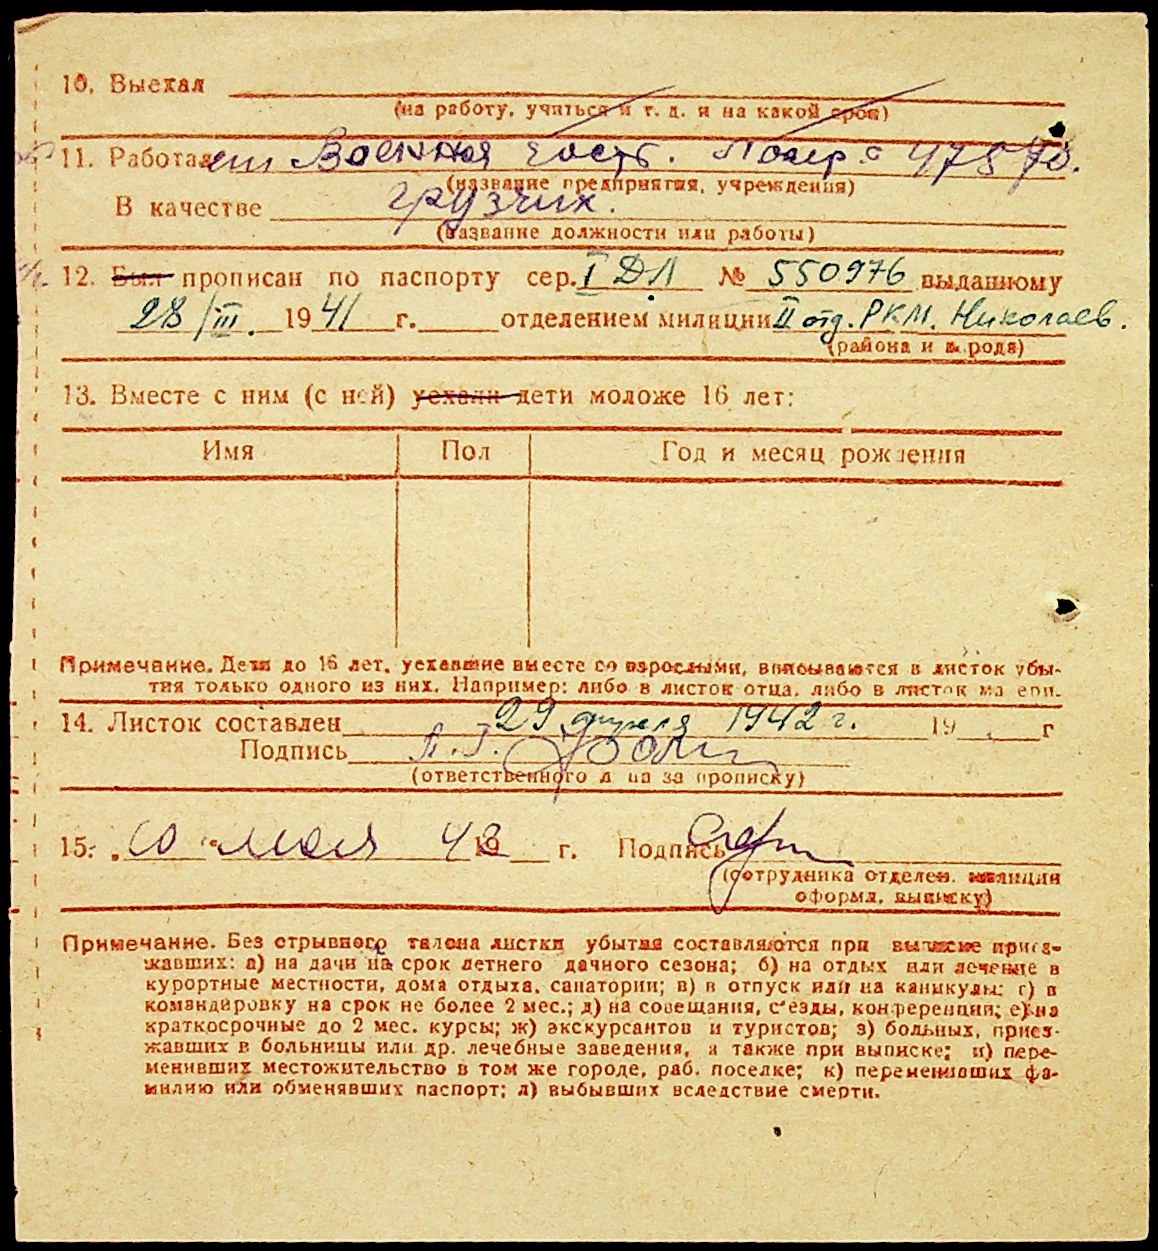 10. Выехал
(на работу, учиться и т. д. и на какой срок)
11. Работает Военная часть.
(название предприятия, учреждения)
В качестве грузчик.
(название должности или работы)
12. Был прописан по паспорту сер. I ДЛ № 550976 выданному
28/III. 1941 г. отделением милиции II отд. РКМ. Николаев.
(района и города)
13. Вместе с ним (с ней) уехали дети моложе 16 лет:
Имя Пол Год и месяц рождения
Примечание. Дети до 16 лет, уехавшие вместе со взрослыми, вписываются в листок убы-
тия только одного из них. Например: либо в листок отца, либо в листок матери.
14. Листок составлен 29 апреля 1942 г. 19 г
Подпись А. Г.
(ответственного лица за прописку)
15. „10“ мая 42 19 г. Подпись
(сотрудника отделен. милиции
оформл. выписку)
Примечание. Без отрывного талона листки убытия составляются при выписке приез-
жавших: а) на дачи на срок летнего дачного сезона; б) на отдых или лечение в
курортные местности, дома отдыха, санатории; в) в отпуск или на каникулы; г) в
командировку на срок не более 2 мес.; д) на совещания, с'езды, конференции; е) на
краткосрочные до 2 мес. курсы; ж) экскурсантов и туристов; з) больных, приез-
жавших в больницы или др. лечебные заведения, а также при выписке; и) пере-
менивших местожительство в том же городе, раб. поселке; к) переменивших фа-
милию или обменявших паспорт; л) выбывших вследствие смерти.